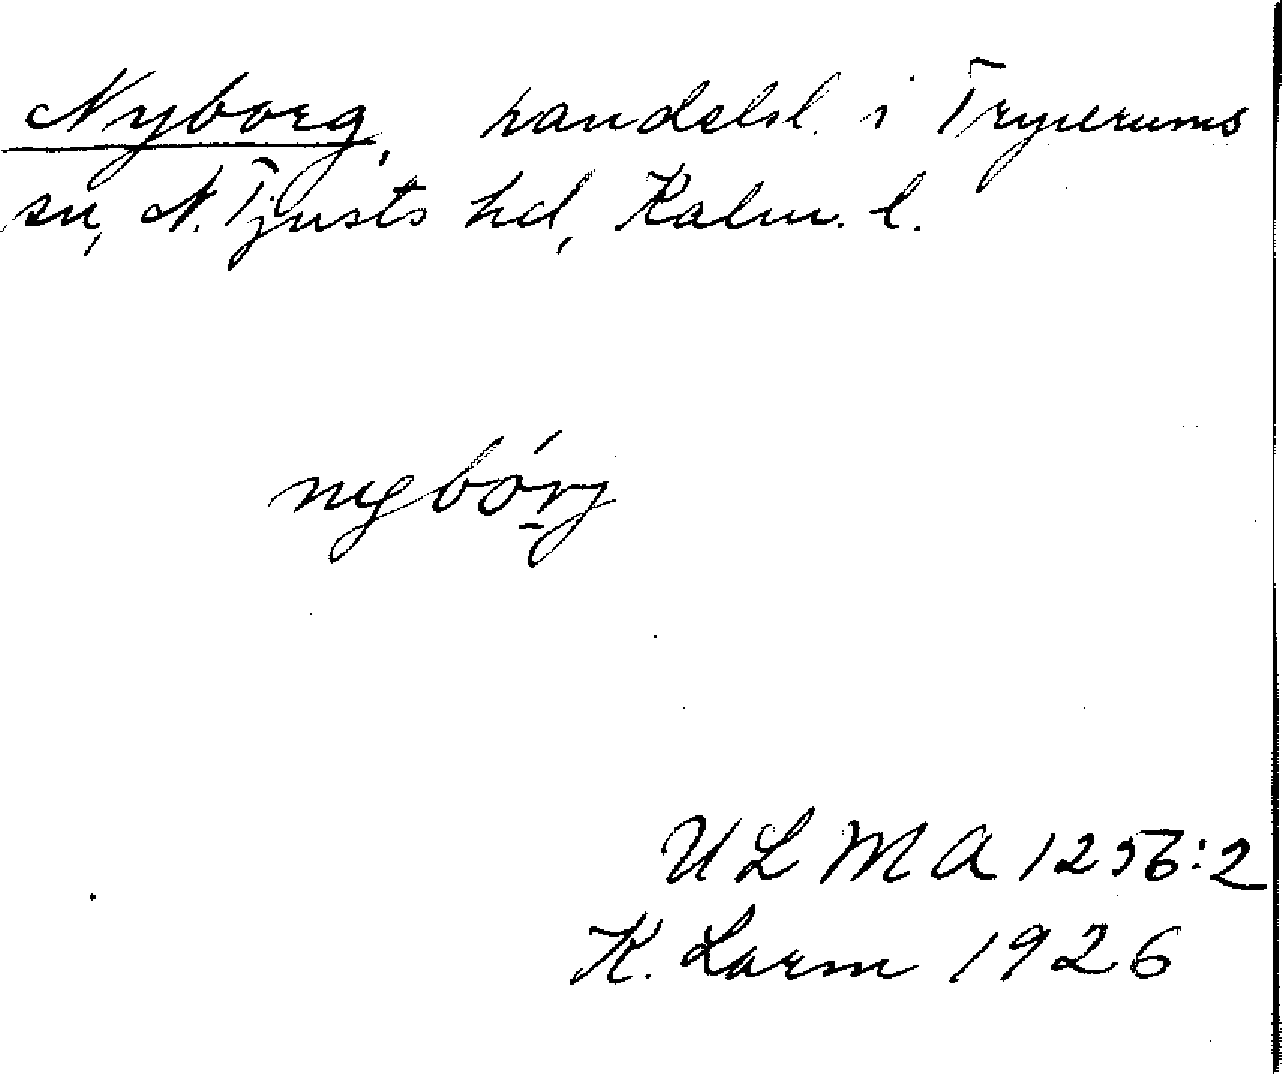 Nyborg, handelsl. i Tryserums
sn, N. Tjusts hd, Kalm. l.
nybórj
ULMA 1256:2
K. Larm 1926